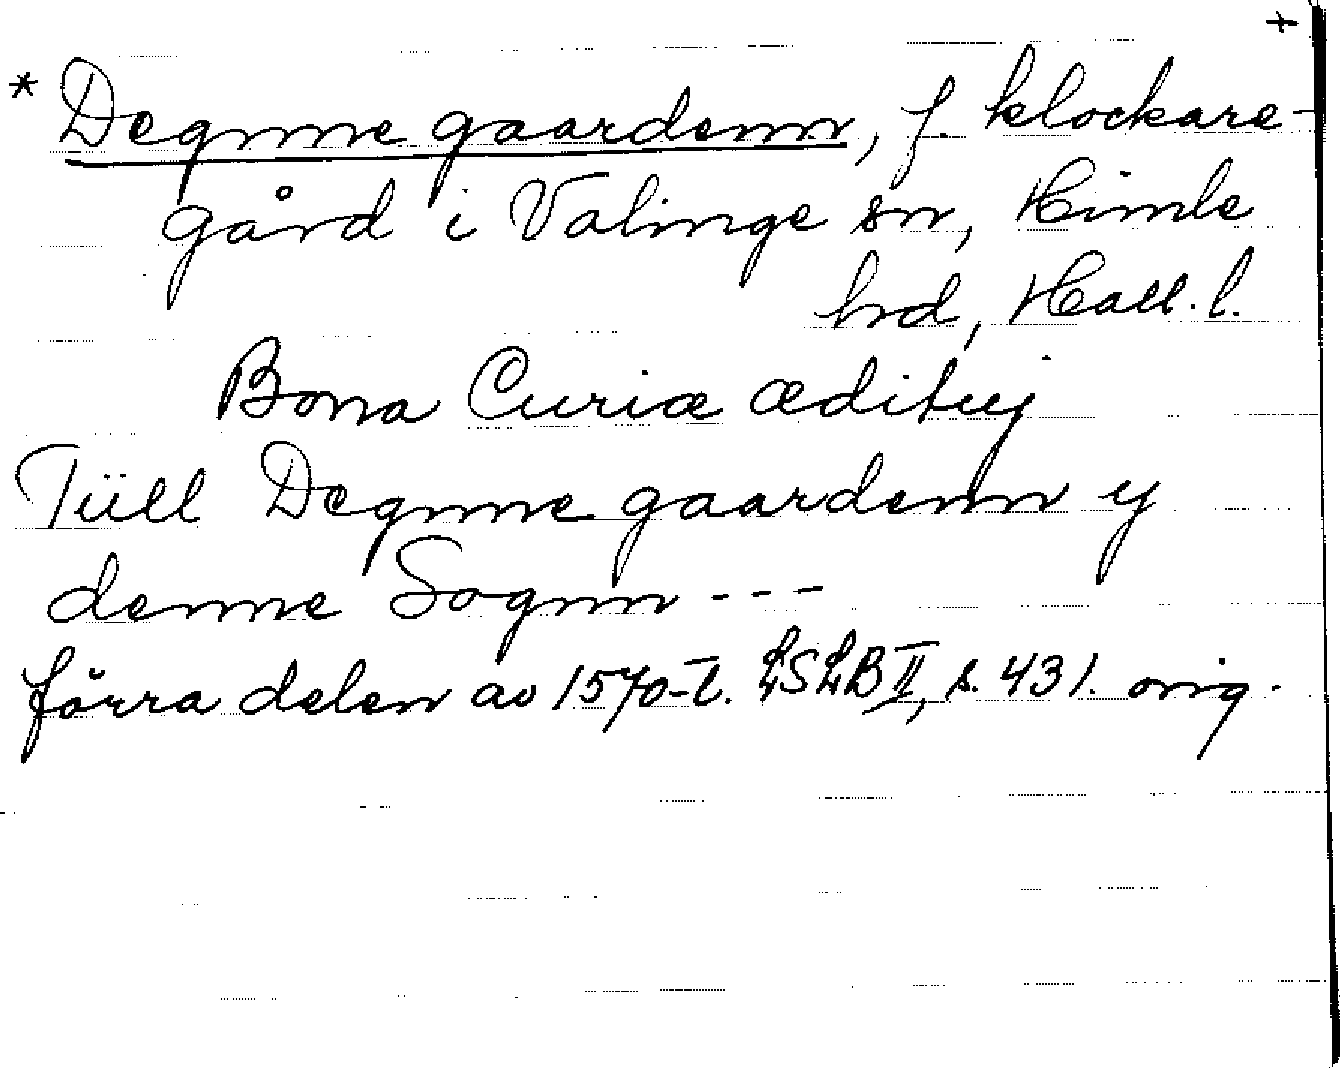 +
* Degnne gaardenn, f. klockare-
gård i Valinge sn, Himle
hd, Hall. l.
Bona Curiæ ædituj
Tüll Degnne gaardenn y
denne Sognn ---
förra delen av 1570-t. LSLB II, s. 431. orig.